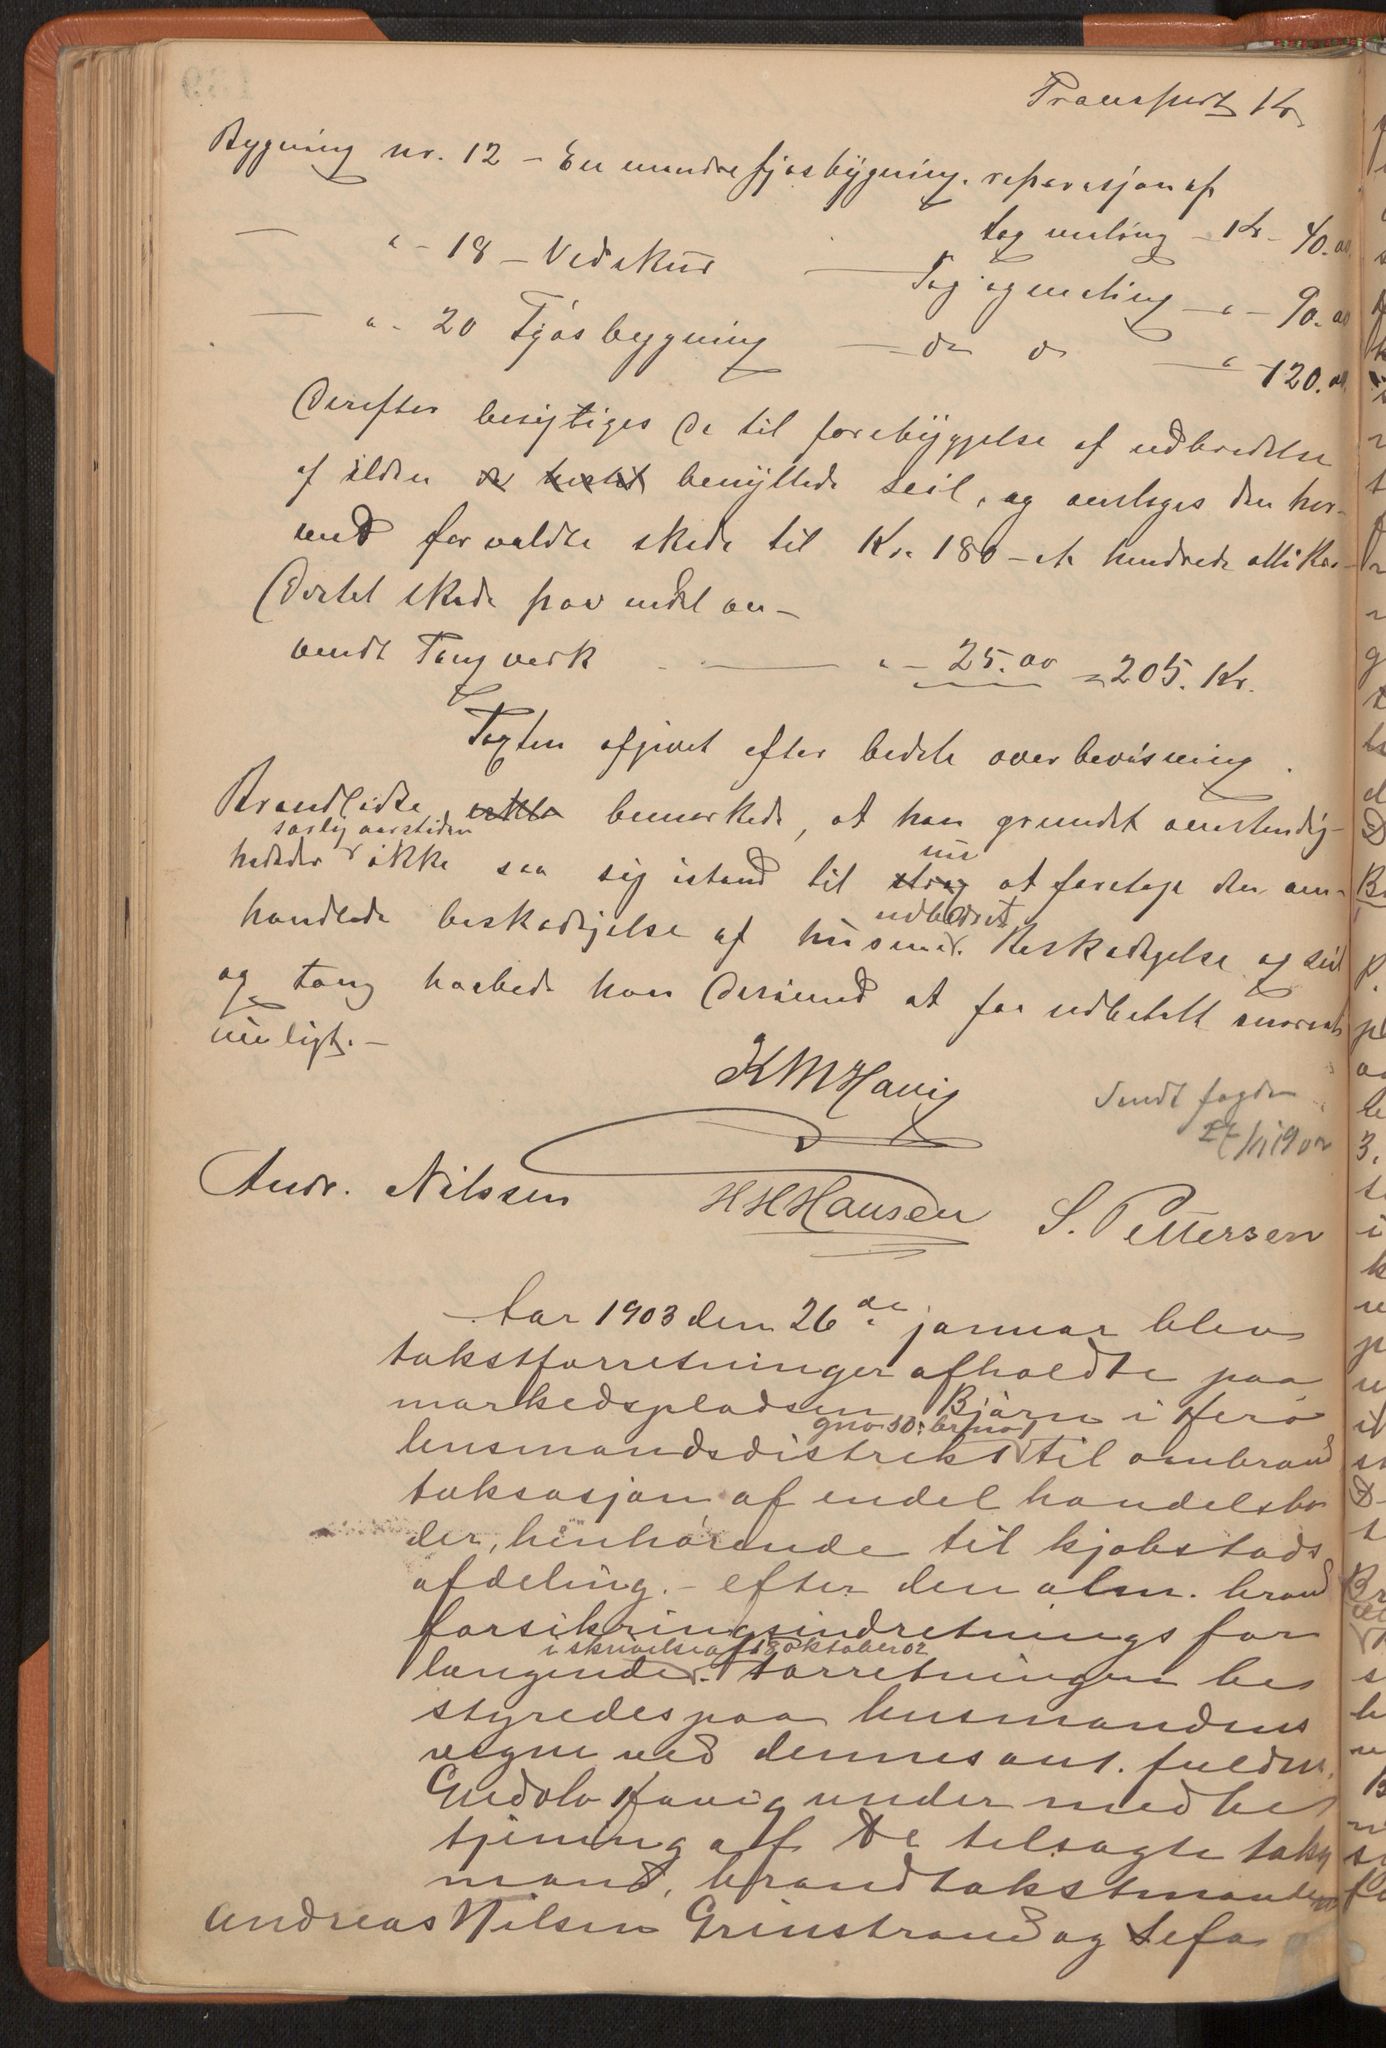 Transport Kr.
Bygning nr. 12 – En mindre fjøsbygning. reparasjon af
tag maling – Kr – 40.00
— " – 18 – Vedskur — Tag og maling – " – 90.00
— " – 20 Fjøsbygning — do do — " – 120.00
Derefter besigtiges de til forebyggelse af udbredelse
af ilden benyttede seil, og ansloges den her-
ved forvoldte skade til Kr. 180 – et hundrede otti Kr –
Dertil skade paa endel an-
vendt Tougverk — " – 25.00 = 205. Kr.
Taxten afgivet efter bedste overbevisning.
Brandlidte bemærkede, at han grundet omstendig-
særlig aarstiden
heder ikke saa sig istand til at foretage den om-
nu
handlede beskadigelse af husene. Beskadigelse af seil
udbedret
og toug haabede han derimod at faa udbetalt snarest
muligt. –
K M Havig
Sendt fogden
27/11 1902
Andr. Nilssen H H Hansen S. Pettersen
Aar 1903 den 26de januar blev
takstforretninger afholdte paa
markedspladsen Bjørn i Herø
gno 50. brno 1
lensmandsdistrikt til ombrand
taksasjon af endel handelsbo
der, henhørende til kjøbstads
afdeling. – efter den alm. brand
forsikringsindretnings for
i skrivelse af 18 oktober 02
langende. Forretningen be
styredes paa lensmandens
vegne ved dennes aut. fuldm.
Gudolv Havig under medbe
tjening af De tilsagte taks
mænd, brandtakstmændene
Andreas Nilsen Grinstrand og Sefa